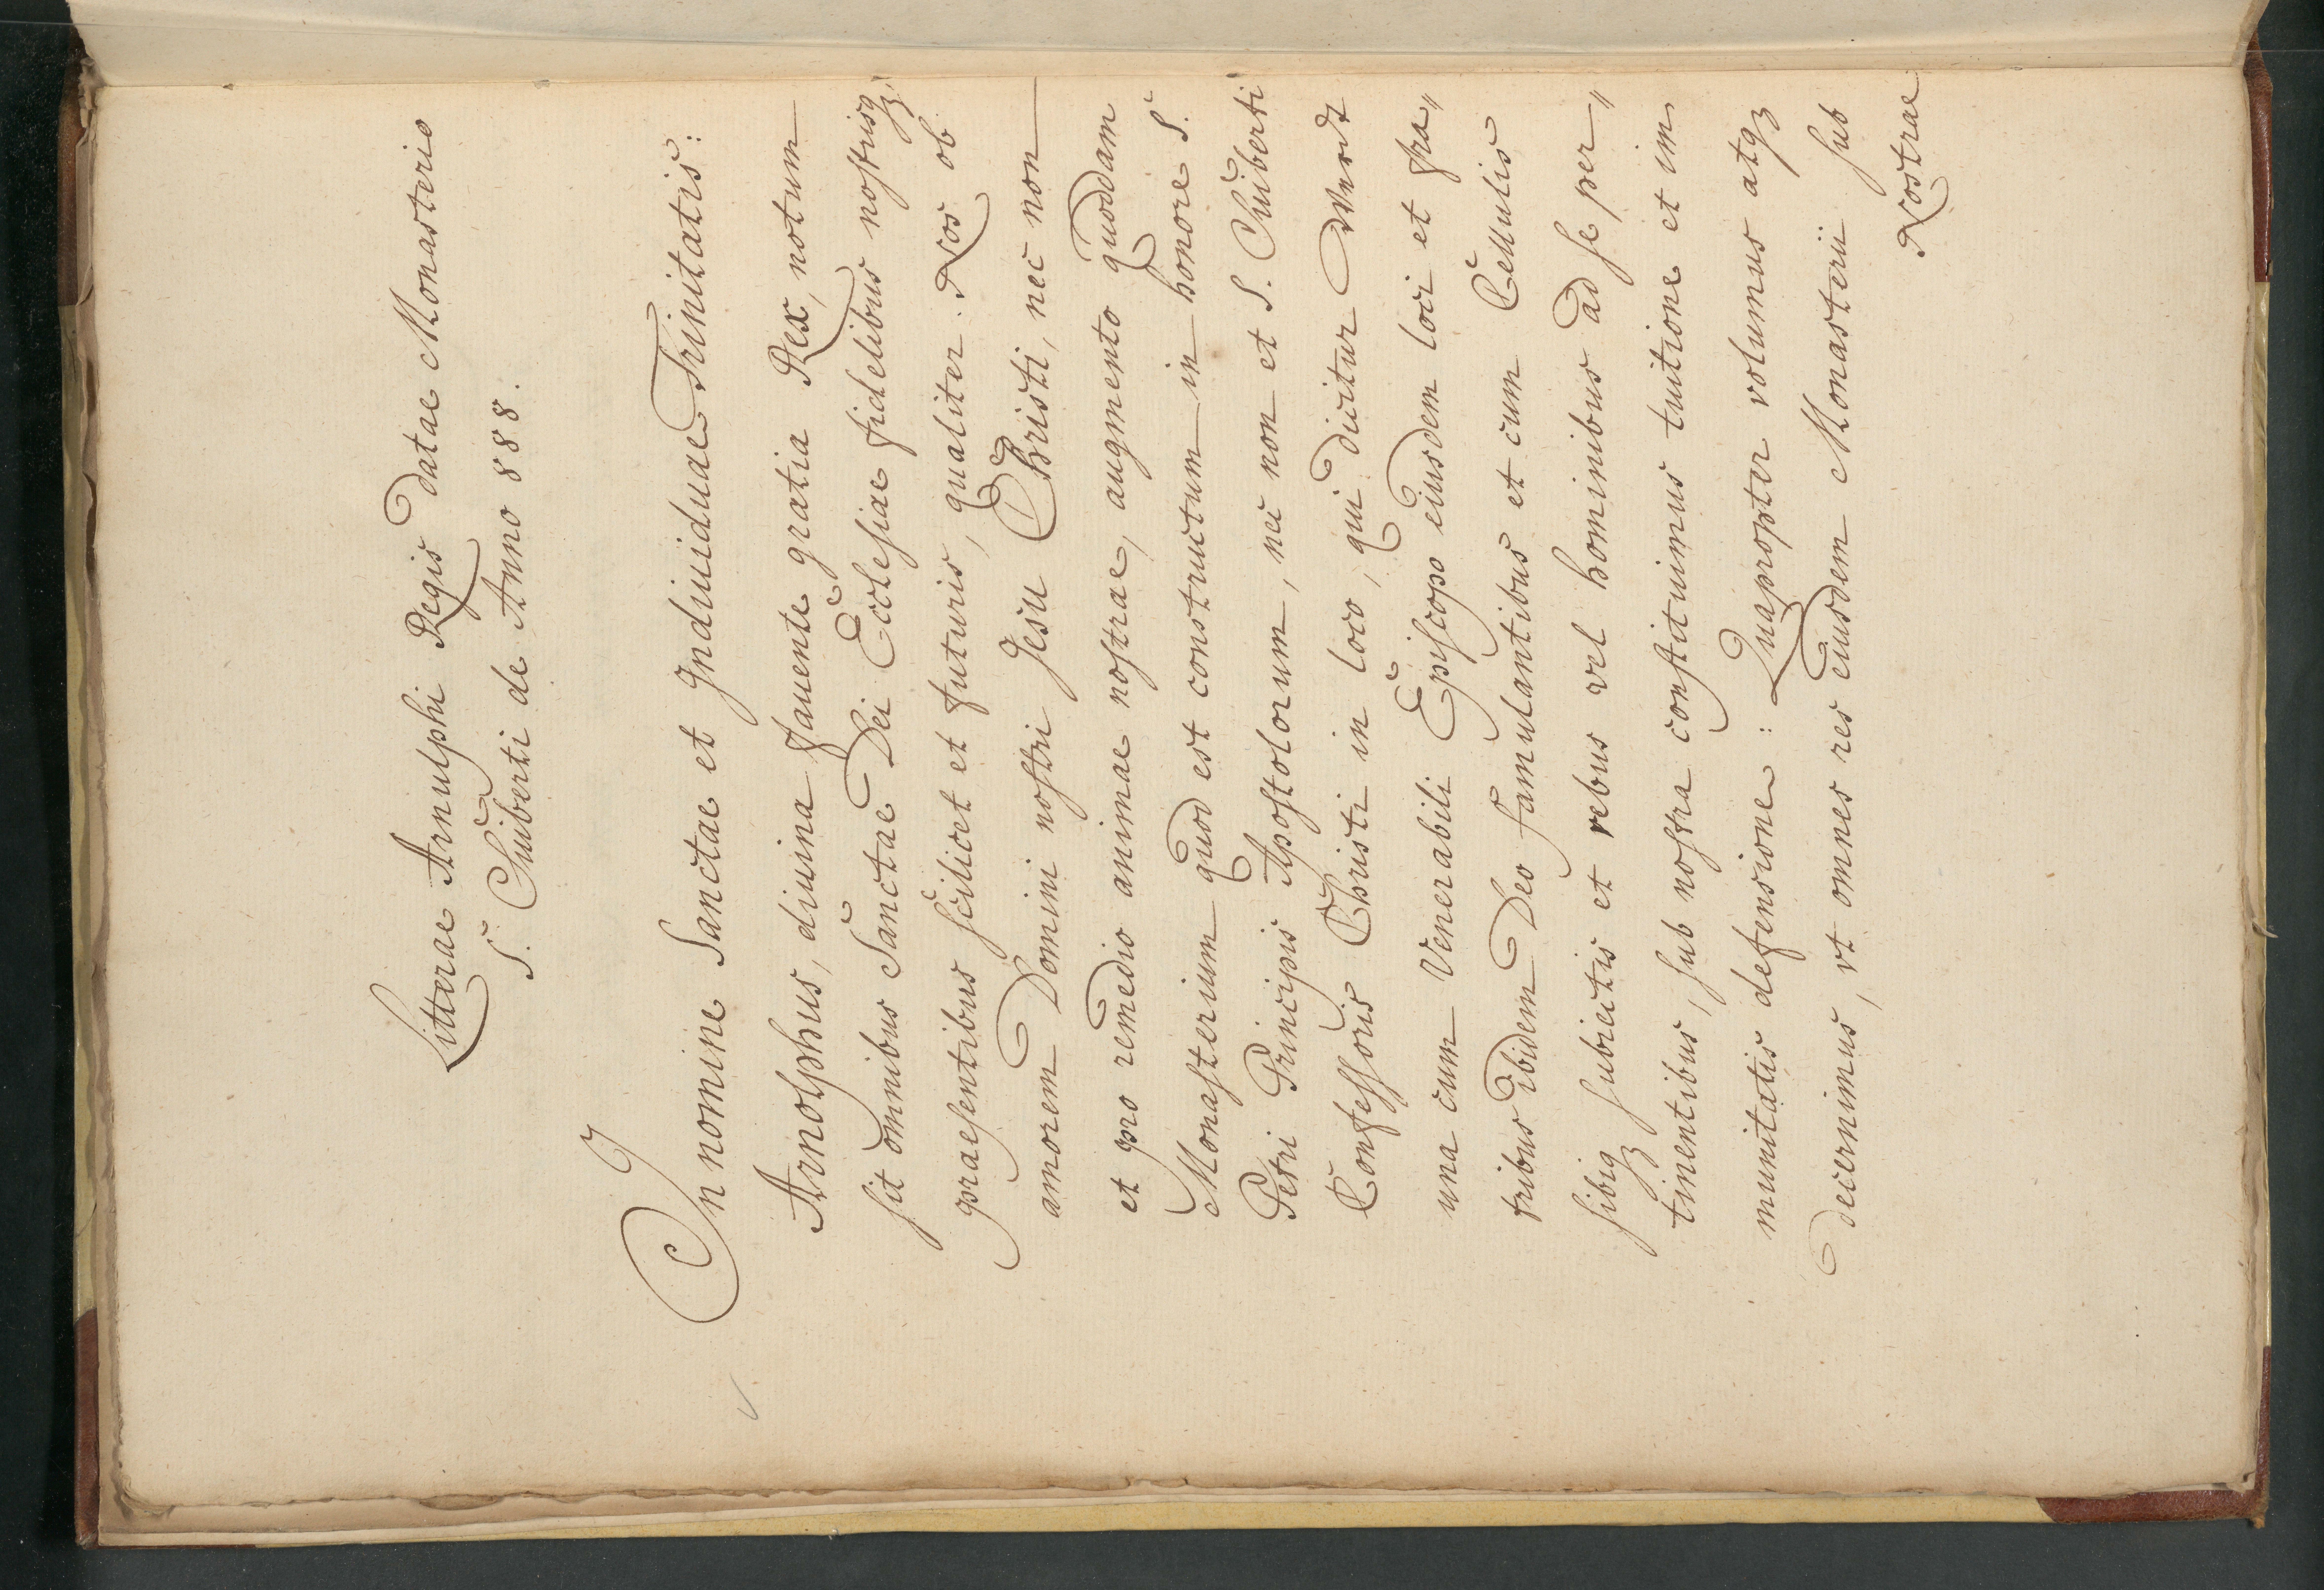 Litterae Arnulphi Regis datae Monasterio
S. Suiberti de Anno 888.
In nomine Sanctae et Indiuiduae Trinitatis:
Arnolphus, diuina fauente gratia Rex, notum
sit omnibus Sanctae Dei Ecclesiae fidelibus nostrisqꝫ
praesentibus scilicet et futuris, qualiter Nos ob
amorem Domini nostri Jesu Christi, nec non
et pro remedio animae nostrae, augmento quoddam
Monasterium quod est constructum in honore S.
Petri Principis Apostolorum, nec non et S. Suiberti
Confessoris Christi in loco, qui dicitur Werdt
una cum Venerabili Episcopo eiusdem loci et fra„
tribus ibidem Deo famulantibus et cum Cellulis
sibiqꝫ subiectis et rebus vel hominibus ad se per„
tinentibus, sub nostra constituimus tuitione et im
munitatis defensione: Quapropter volumus atqꝫ
decernimus, vt omnes res eiusdem Monasterii sub
Nostrae